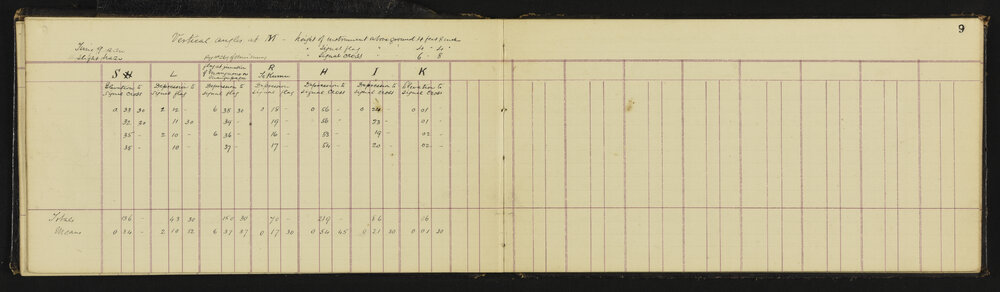 9
Vertical angles at M - height of instrument above ground 4 feet 8 inch
Time 9 a.m. " Signal flag " 4 - 4
Slight haze " Signal Cross 6 - 8
S L R H I K
Elevation to Signal Cross Depression to Signal flag Depression to Depression Signal flag Depression to Signal Cross Depression to Signal Cross Elevation to Signal Cross
0 33 30 2 12 - 6 35 30 2 18 - 0 56 - 0 24 - 0 01 -
32 30 11 30 39 - 19 - 56 - 23 - 01 -
35 - 2 10 - 6 36 - 16 - 53 - 19 - 02 -
35 - 10 - 37 - 17 - 54 - 20 - 02 -
Totals 136 - 43 30 150 30 70 - 219 - 86 06
Means 0 34 - 2 10 52 6 37 37 0 17 30 0 54 45 0 21 30 0 01 30